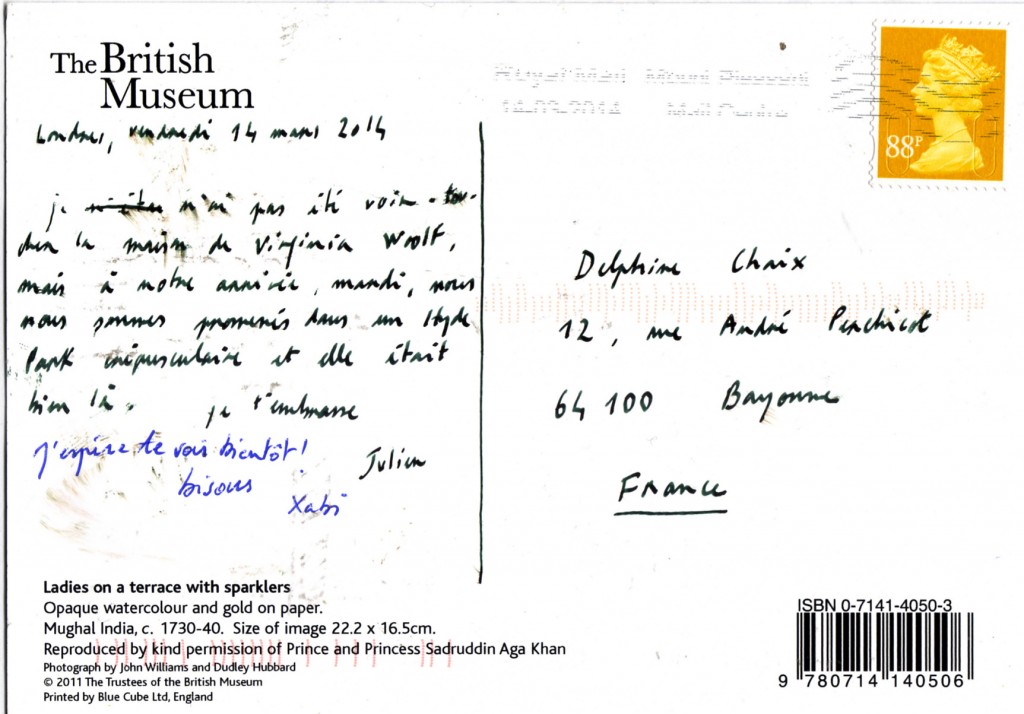 The British
Museum
Londres, vendredi 14 mars 2014
je n'ai pas été voir - tou-
cher la maison de Virginia Woolf,
mais à notre arrivée, mardi, nous
nous sommes promenés dans un Hyde
Park crépusculaire et elle était
bien là. je t'embrasse
Julien
j'espère te voir bientôt!
bisous
Xabi
Ladies on a terrace with sparklers
Opaque watercolour and gold on paper.
Mughal India, c. 1730-40. Size of image 22.2 x 16.5cm.
Reproduced by kind permission of Prince and Princess Sadruddin Aga Khan
Photograph by John Williams and Dudley Hubbard
© 2011 The Trustees of the British Museum
Printed by Blue Cube Ltd, England
Royal Mail Mount Pleasant
14-03-2014 Mail Centre
88P
Delphine Chaix
12, rue André Perchicot
64 100 Bayonne
France
ISBN 0-7141-4050-3
9 780714 140506